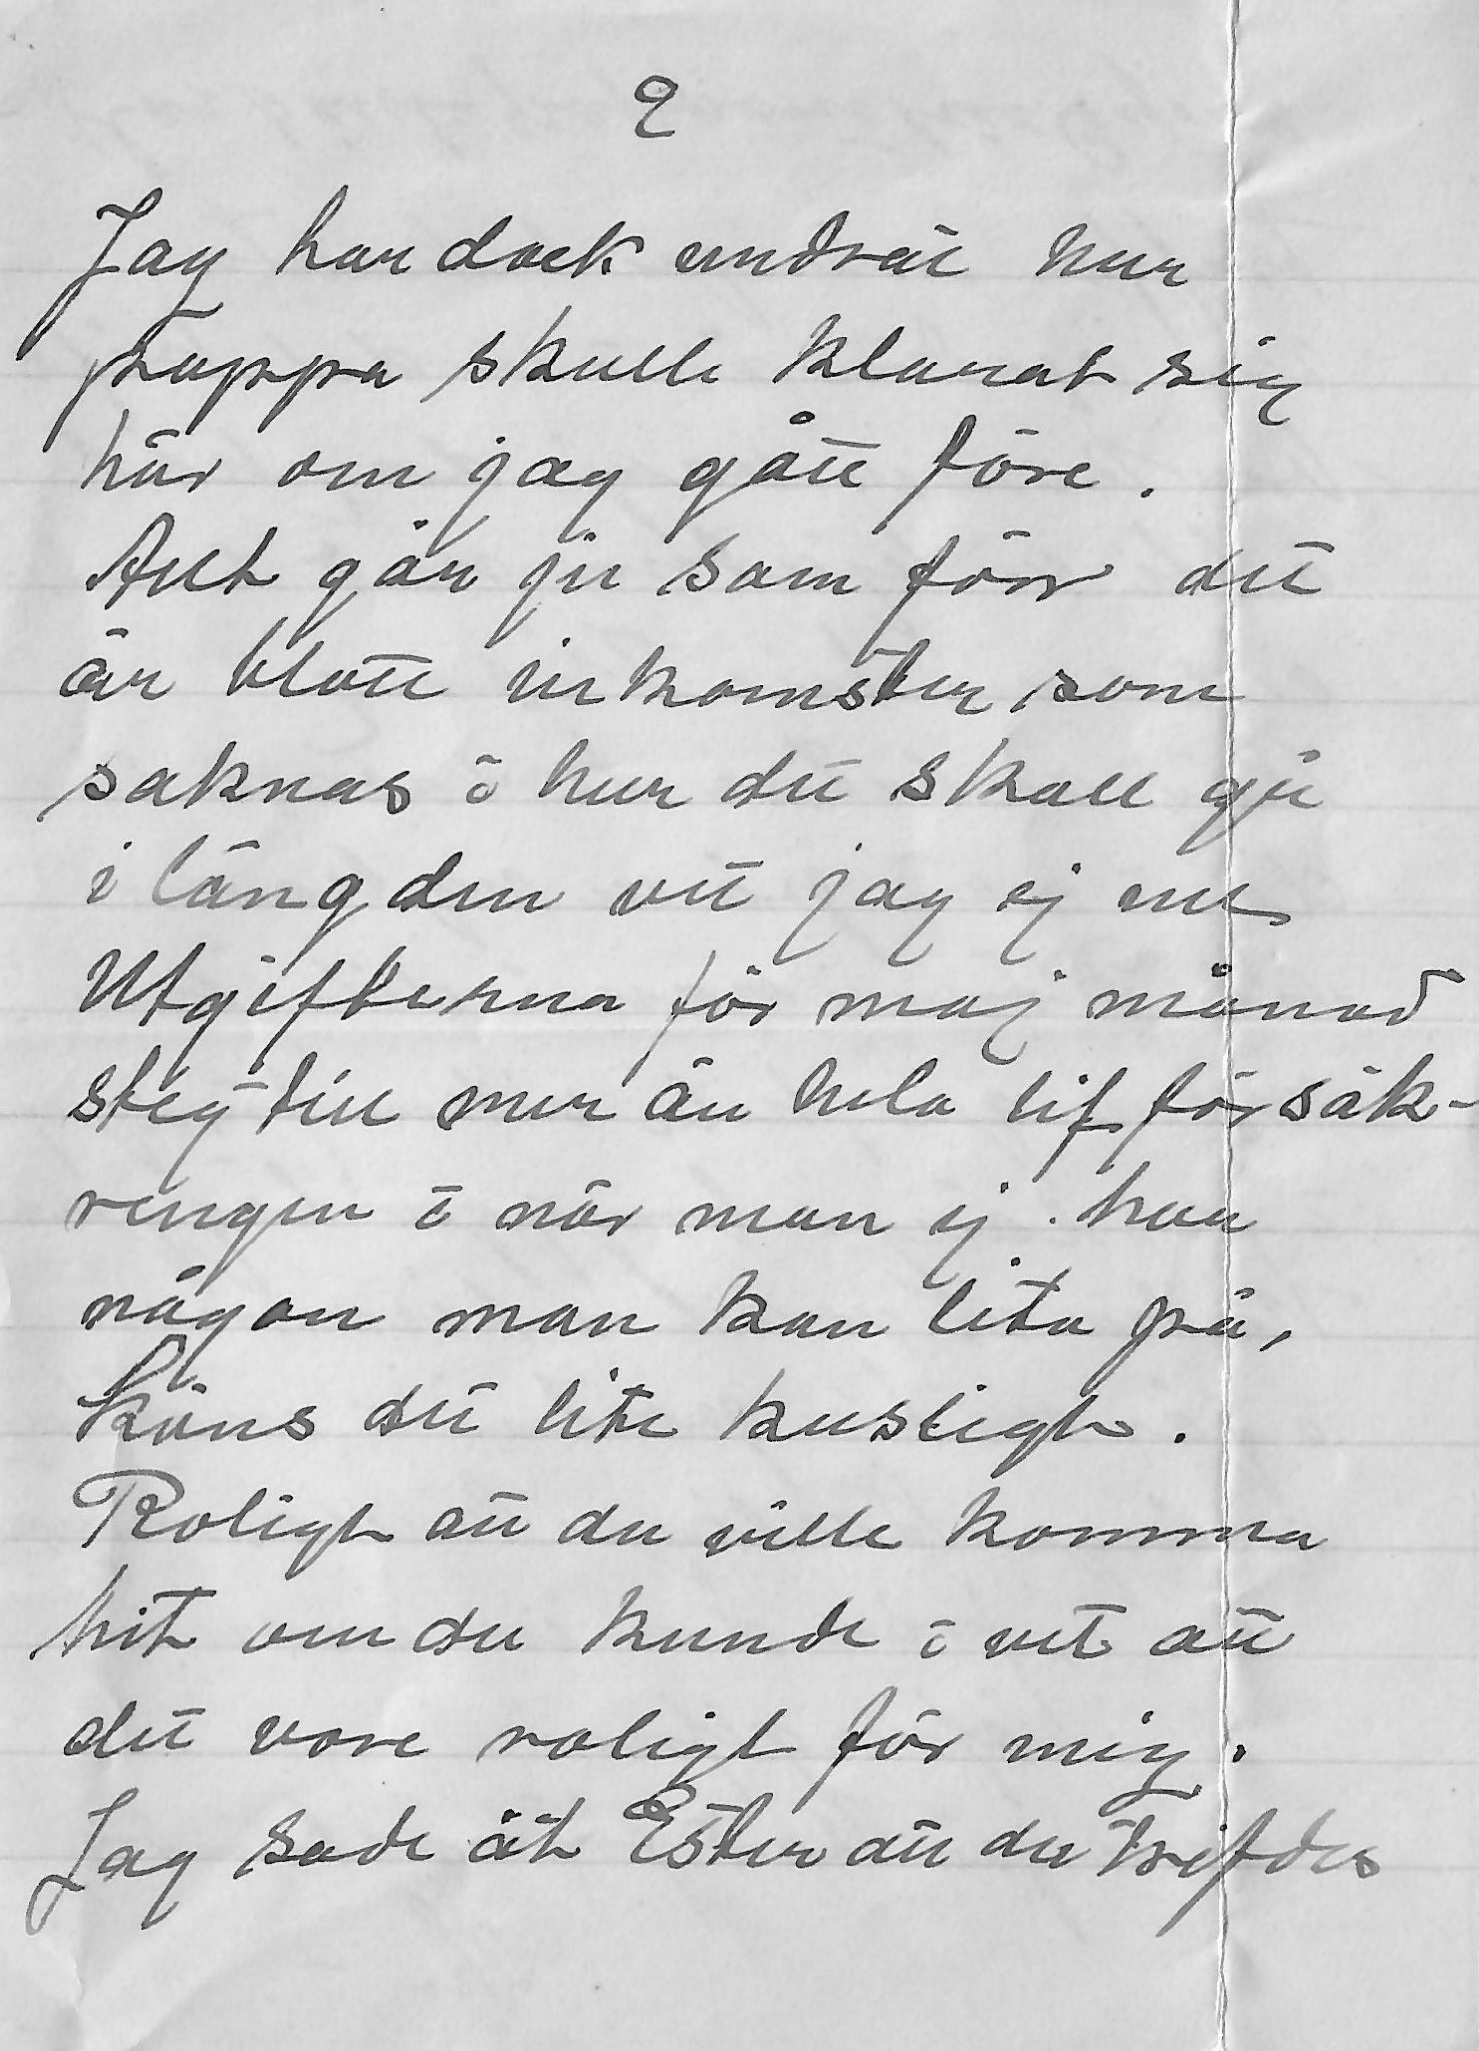 2
Jag har dock undrat hur
pappa skulle klarat sig
här om jag gått före.
Allt går ju som förr det
är blott inkomster som
saknas o hur det skall gå
i längden vet jag ej nu
Utgifterna för maj månad
steg till mer än hela lifförsäk-
ringen o när man ej har
någon man kan lita på,
käns det lite kusligt.
Roligt att du ville komma
hit om du kunde o vet att
det vore roligt för mig.
Jag sade åt Ester att du trifdes